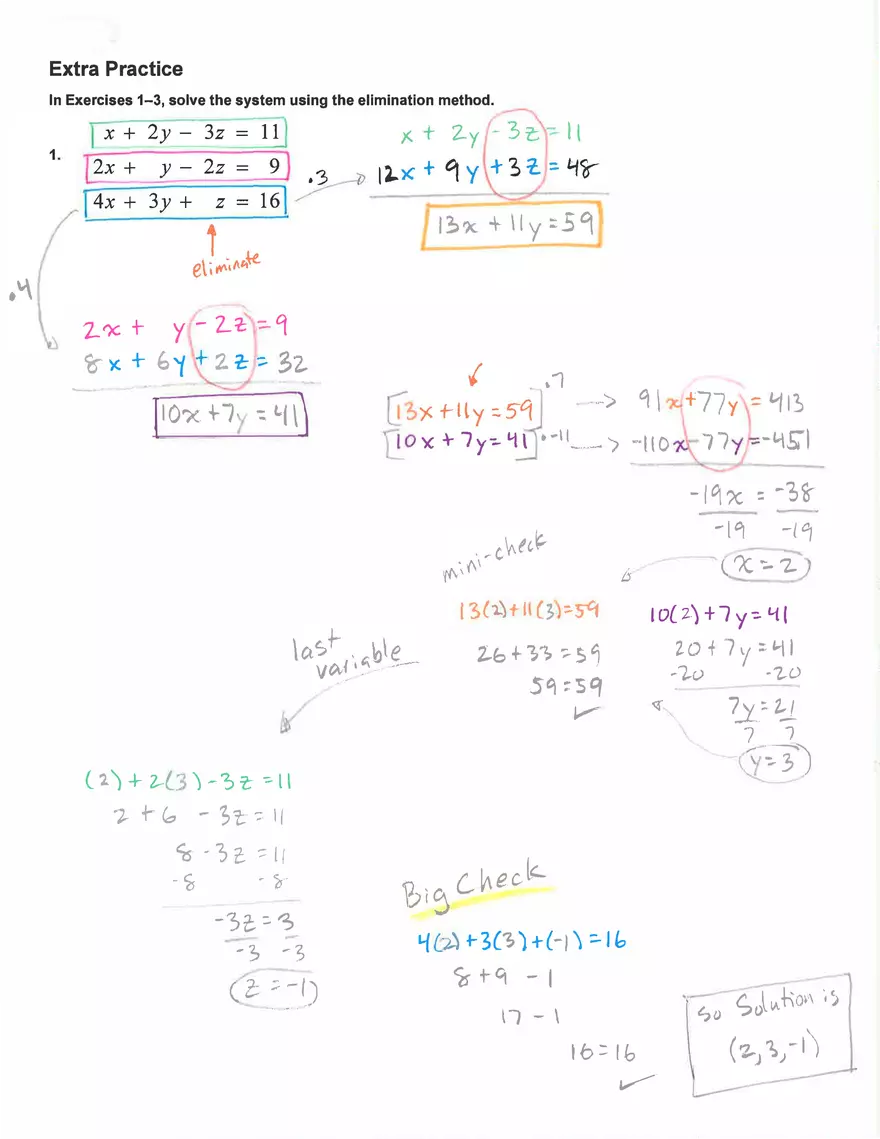 Extra Practice
In Exercises 1–3, solve the system using the elimination method.
1.
x + 2y − 3z = 11
2x + y − 2z = 9
4x + 3y + z = 16
eliminate
.3
x + 2y - 3z = 11
12x + 9y + 3z = 48
13x + 11y = 59
.4
2x + y - 2z = 9
8x + 6y + 2z = 32
10x + 7y = 41
[13x + 11y = 59] .7
[10x + 7y = 41] .-11
91x + 77y = 413
-110x - 77y = -451
-19x = -38
-19 -19
x = 2
mini-check
13(2) + 11(3) = 59
26 + 33 = 59
59 = 59 ✓
10(2) + 7y = 41
20 + 7y = 41
-20 -20
7y = 21
7 7
y = 3
last
variable
(2) + 2(3) - 3z = 11
2 + 6 - 3z = 11
8 - 3z = 11
-8 -8
-3z = 3
-3 -3
z = -1
Big Check
4(2) + 3(3) + (-1) = 16
8 + 9 - 1
17 - 1
16 = 16 ✓
So Solution is
(2, 3, -1)